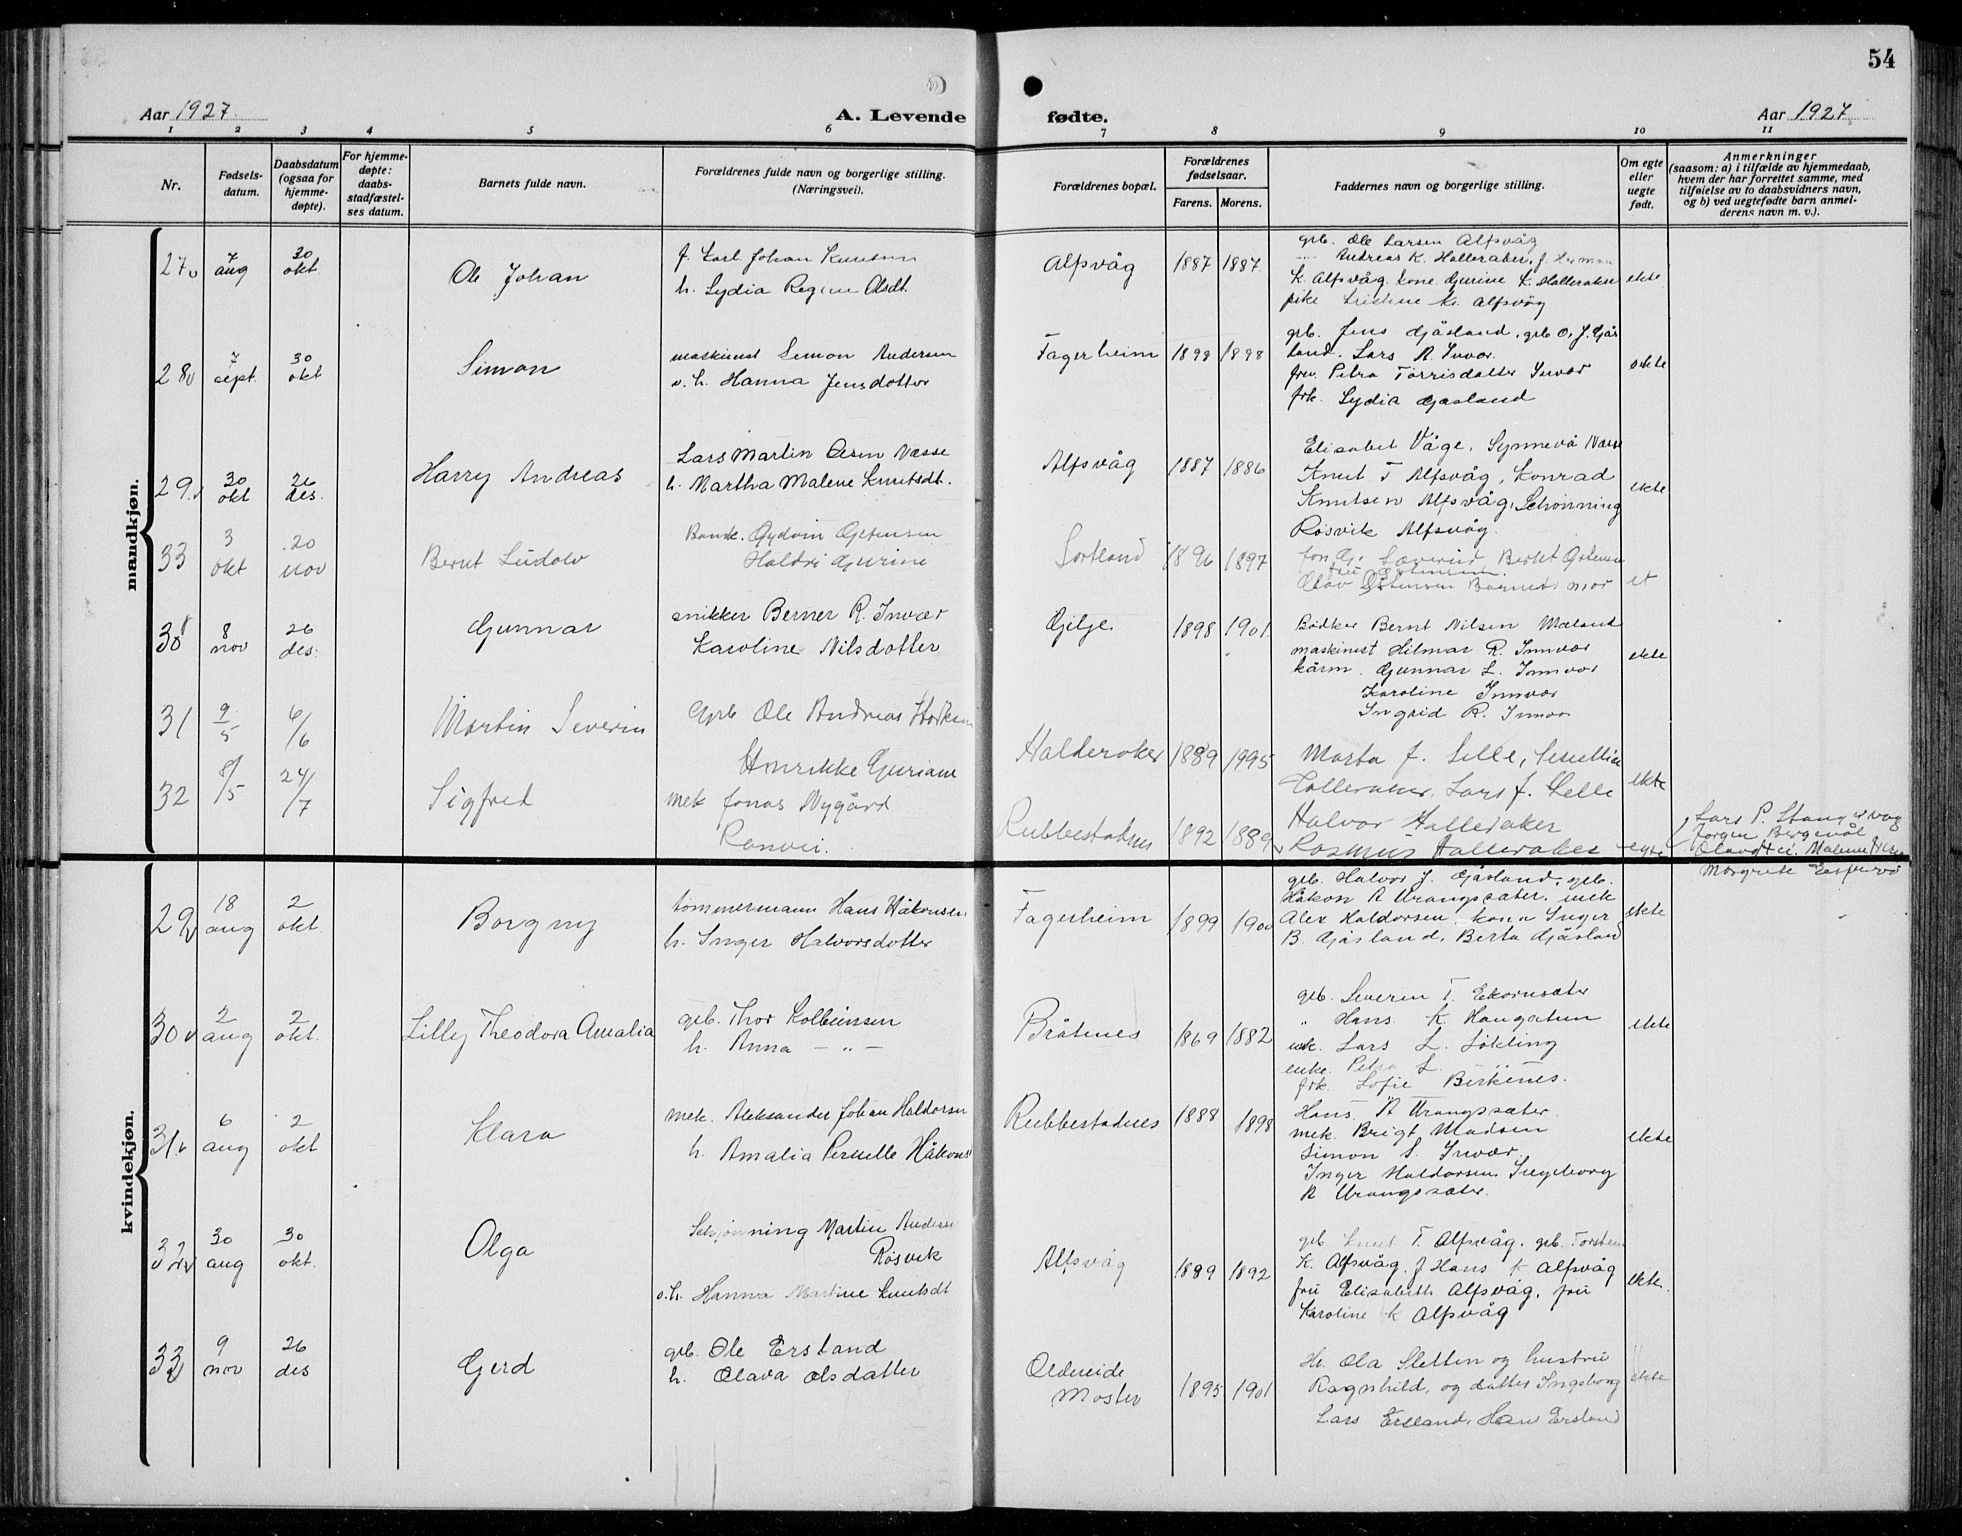 54
Aar 1927
A. Levende
fødte.
Aar 1927
1 2 3 4 5 6 7 8 9 10 11
Nr.
Fødsels-
datum.
Daabsdatum
(ogsaa for
hjemme-
døpte).
For hjemme-
døpte:
daabs-
stadfæstel-
ses datum.
Barnets fulde navn.
Forældrenes fulde navn og borgerlige stilling.
(Næringsvei).
Forældrenes bopæl.
Forældrenes
fødselsaar.
Farens. Morens.
Faddernes navn og borgerlige stilling.
Om egte
eller
uegte
født.
Anmerkninger
(saasom: a) i tilfælde av hjemmedaab,
hvem der har forrettet samme, med
tilføielse av to daabsvidners navn,
og b) ved uegtefødte barn anmel-
derens navn m. v.).
mandkjøn.
27
7
aug
30
okt
Ole Johan
f. Karl Johan Knutsen
h. Lydia Regine Olsdt.
Alfsvåg
1887 1887
grb. Ole Larsen Alfsvåg
Andreas K. Halleraker, f. Herman
K. Alfsvåg, kone Gurine K. Halleraker
pike Kristine K. Alfsvåg
ekte
28
7
sept.
30
okt
Simon
maskinist Simon Andersen
o. h. Hanna Jensdotter
Fagerheim
1898 1898
grb. Jens Gjåsland, grb O. J. Gjås
land. Lars A. Invær.
fru. Petra Torrisdatter Invær
frk. Lydia Gjåsland
ekte
29
30
okt
26
des.
Harry Andreas
Lars Martin Olsen Næsse
h. Martha Malene Knutsdt.
Alfsvåg
1887 1886
Elisabet Våge, Synnevå Næsse
Knut T Alfsvåg, Konrad
Knutsen Alfsvåg, Schønning
Røsvik Alfsvåg
ekte
33
3
okt
20
nov
Bernt Ludolv
Haldri Gurine
Sortland
1896 1897
Olav Østensen Barnets mor
30
8
nov
26
des.
Gunnar
snikker Berner R. Invær
Karoline Nilsdotter
Gilje
1898 1901
Bødker Bernt Nilsen Mæland
maskinist Hilmar R. Innvær
Gunnar L. Innvær
Karoline Innvær
Ingrid R. Innvær
ekte
31
9
5
6/6
Martin Severin
Grb Ole Andreas
Henrikke Guriane
Halderaker
1889 1995
Marta J. Lille,
Halleraker, Lars J. Lille
ekte
32
8/5
24/7
Sigfred
mek Jonas Nygård
Ranvei.
Rubbestadnes
1892 1889
Halvor Halleraker
Rasmus Halleraker
egte
Lars P. Stangervåg
Jørgen Bergevål
Margrete
kvindekjøn.
29
18
aug
2
okt.
Borgny
tømmermann Hans Håkonsen
h. Inger Halvorsdotter
Fagerheim
1899 1900
grb. Halvor J. Gjåsland, grb.
Håkon A Vrangssæter. mek
Alex Haldorsen, kone Inger
B. Gjåsland, Berta Gjåsland
ekte
30
2
aug
2
okt.
Lilly Theodora Amalia
grb. Thor Kolbeinsen
h. Anna — „ —
Bråtenes
1869 1882
grb. Severin T. Ekornsæter
„ Hans K. Haugatun
Lars L. Løkling
enke. Petra L. „
frk. Sofie Birkenes.
ekte
31
6
aug
2
okt
Klara
mek. Aleksander Johan Haldorsen
h. Amalia Pernelle Håkons
Rubbestadnes
1888 1898
Hans A Vrangssæter.
mek. Brigt Madsen
Simon S. Invær.
Inger Haldorsen, Ingeborg
A Vrangssæter.
ekte
32
30
aug
30
okt.
Olga
Schønning Martin Anders
Røsvik
o. h. Hanna Martine Knutsdt
Alfsvåg
1889 1892
grb Knut T. Alfsvåg. grb. Torstein
K. Alfsvåg. f Hans K Alfsvåg
fru Elisabeth Alfsvåg, fru
Karoline K Alfsvåg
ekte.
33
9
nov
26
des
Gerd
grb. Ole Ersland
h. Olava Olsdatter
Oldereide
Moster
1895 1901
Hr. Ola Sletten og hustru
Ragnhild, og datter Ingeborg
Lars Ersland, Hans Ersland
ekte